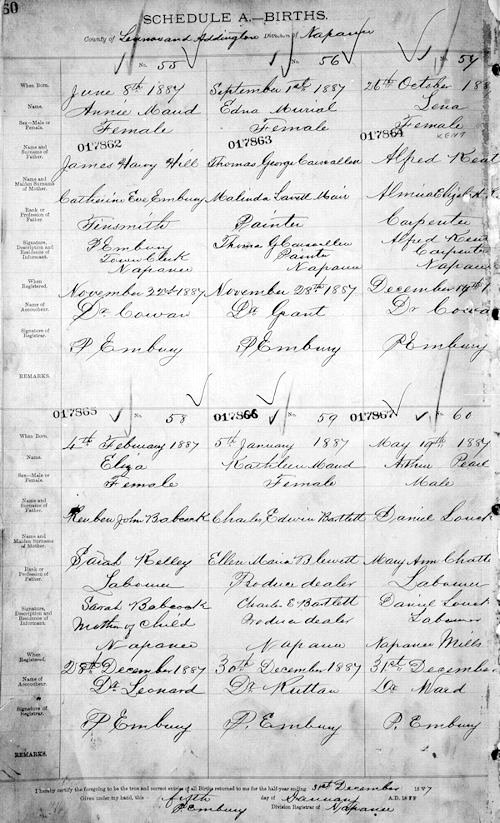 60
SCHEDULE A.—BIRTHS.
County of Lennox and Addington Division of Napanee
No. 55 No. 56 No. 57
When Born. June 8th 1887 September 1st 1887 26th October 188
Name. Annie Maud Edna Murial Lena
Sex—Male or Female. Female Female Female
017862 017863 017864 KENT
Name and Surname of Father. James Harvy Hill Thomas George Carscallen Alfred Kent
Name and Maiden Surname of Mother. Catherine Eve Embury Malinda Lavell Mair Almira Elizbh
Rank or Profession of Father. Tinsmith Painter Carpenter
Signature, Description and Residence of Informant. P Embury Thomas G Carscallen Alfred Kent
Town Clerk Painter Carpente
Napanee Napanee Napanee
When Registered. November 22nd 1887 November 28th 1887 December 19th 1
Name of Accoucheur. Dr Cowan Dr Grant Dr Cowa
Signature of Registrar. P Embury P Embury P Embury
REMARKS.
017865 No. 58 017866 No. 59 017867 No. 60
When Born. 4th February 1887 5th January 1887 May 19th 1887
Name. Eliza Kathleen Maud Arthur Pearl
Sex—Male or Female. Female Female Male
Name and Surname of Father. Reuben John Babcock Charles Edwin Bartlett Daniel Louck
Name and Maiden Surname of Mother. Sarah Kelley Ellen Maria Blewett Mary Ann Chatt
Rank or Profession of Father. Labourer Produce dealer Labourer
Signature, Description and Residence of Informant. Sarah Babcock Charles E Bartlett Daniel Louck
Mother of Child Produce dealer Labourer
Napanee Napanee Napanee Mills
When Registered. 28th December 1887 30th December 1887 31st December
Name of Accoucheur. Dr Leonard Dr Ruttan Dr Ward
Signature of Registrar. P Embury P. Embury P. Embury
REMARKS.
I hereby certify the foregoing to be the true and correct entries of all Births returned to me for the half-year ending 31st December 1887
Given under my hand, this fifth day of January A.D. 1888
P Embury Division Registrar of Napanee